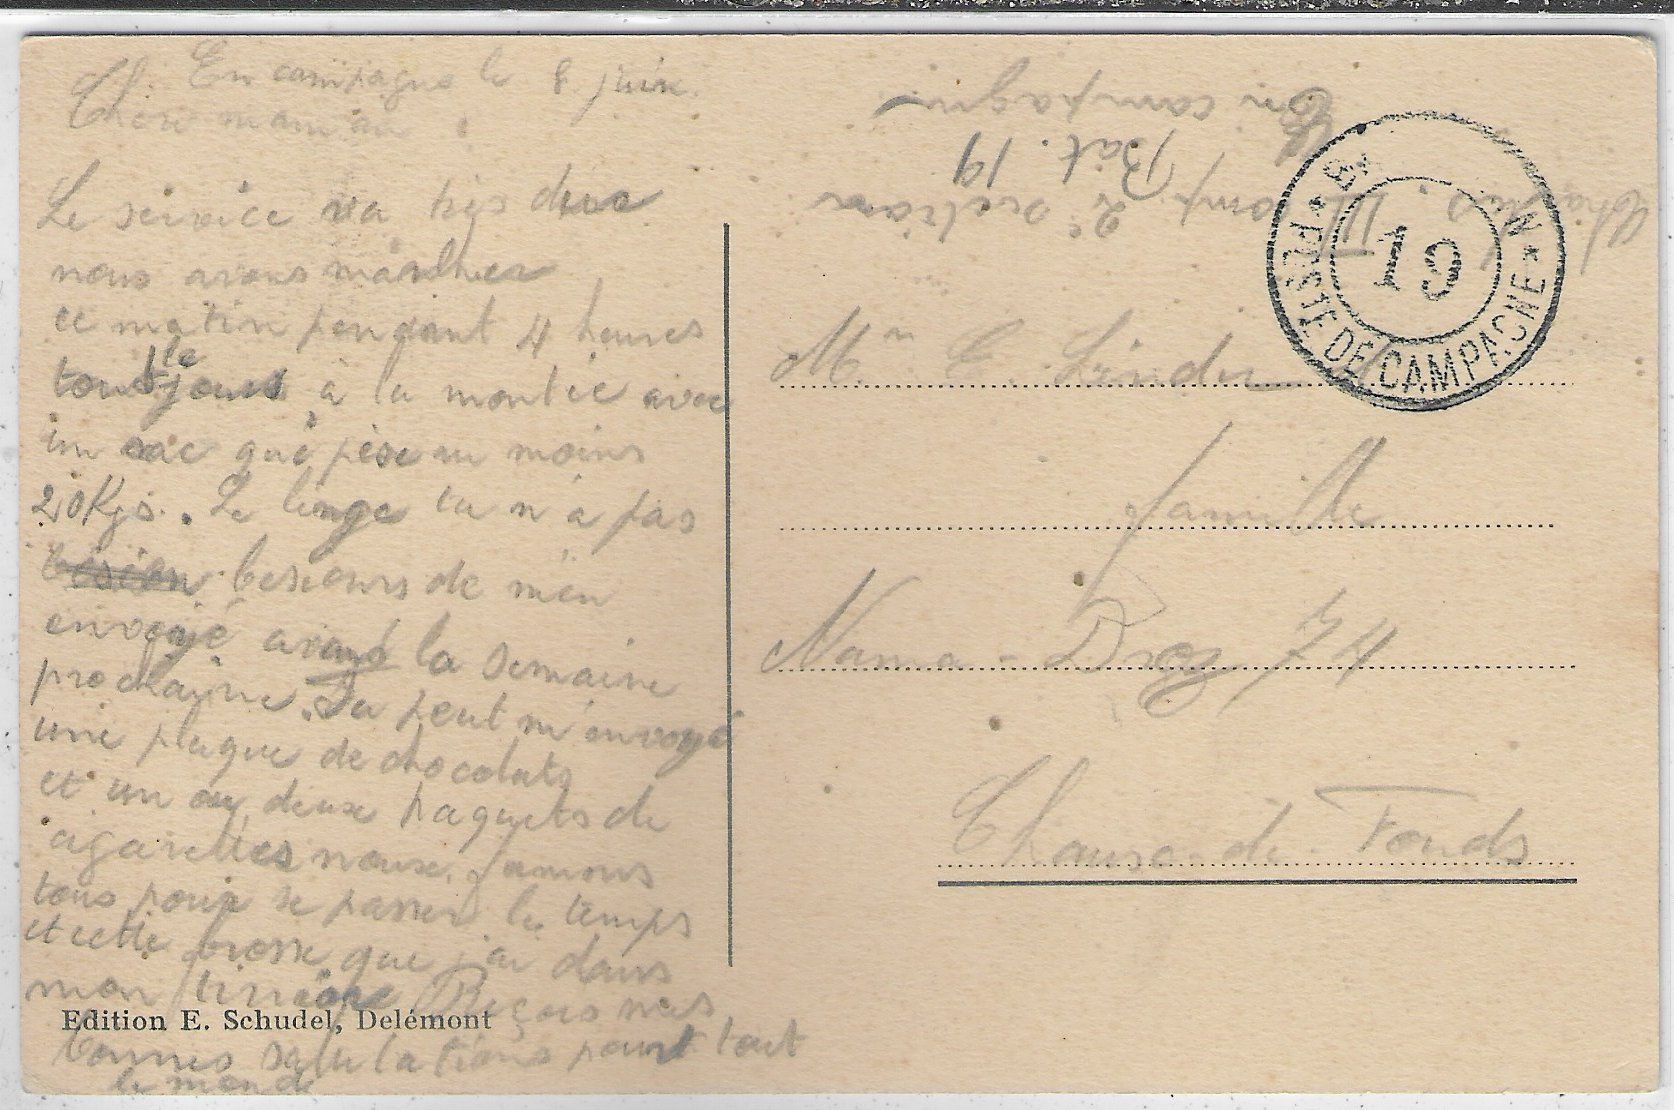 En campagne le 8 juin.
Chère maman
Le service va très dure
nous avons marcher
ce matin pendant 4 heures
tout le jours à la montée avec
un sac que pèse au moins
20 Kgs. Le linge tu n'a pas
besiours de m'en
envoyé avant la semaine
prochaine. Tu peut m'envoyé
une plaque de chocolats
et un ou deux paquets de
cigarettes nous fumons
tous pour se passer le temps
et cette brosse que j'ai dans
mon tiroire Reçois mes
bonnes salutations pour tout
le monde
Edition E. Schudel, Delémont
comp. III 2e section
Bat. 19
En campagne
POSTE DE CAMPAGNE
19
Mr C. Linder
famille
Numa-Droz 74
Chaux-de-Fonds